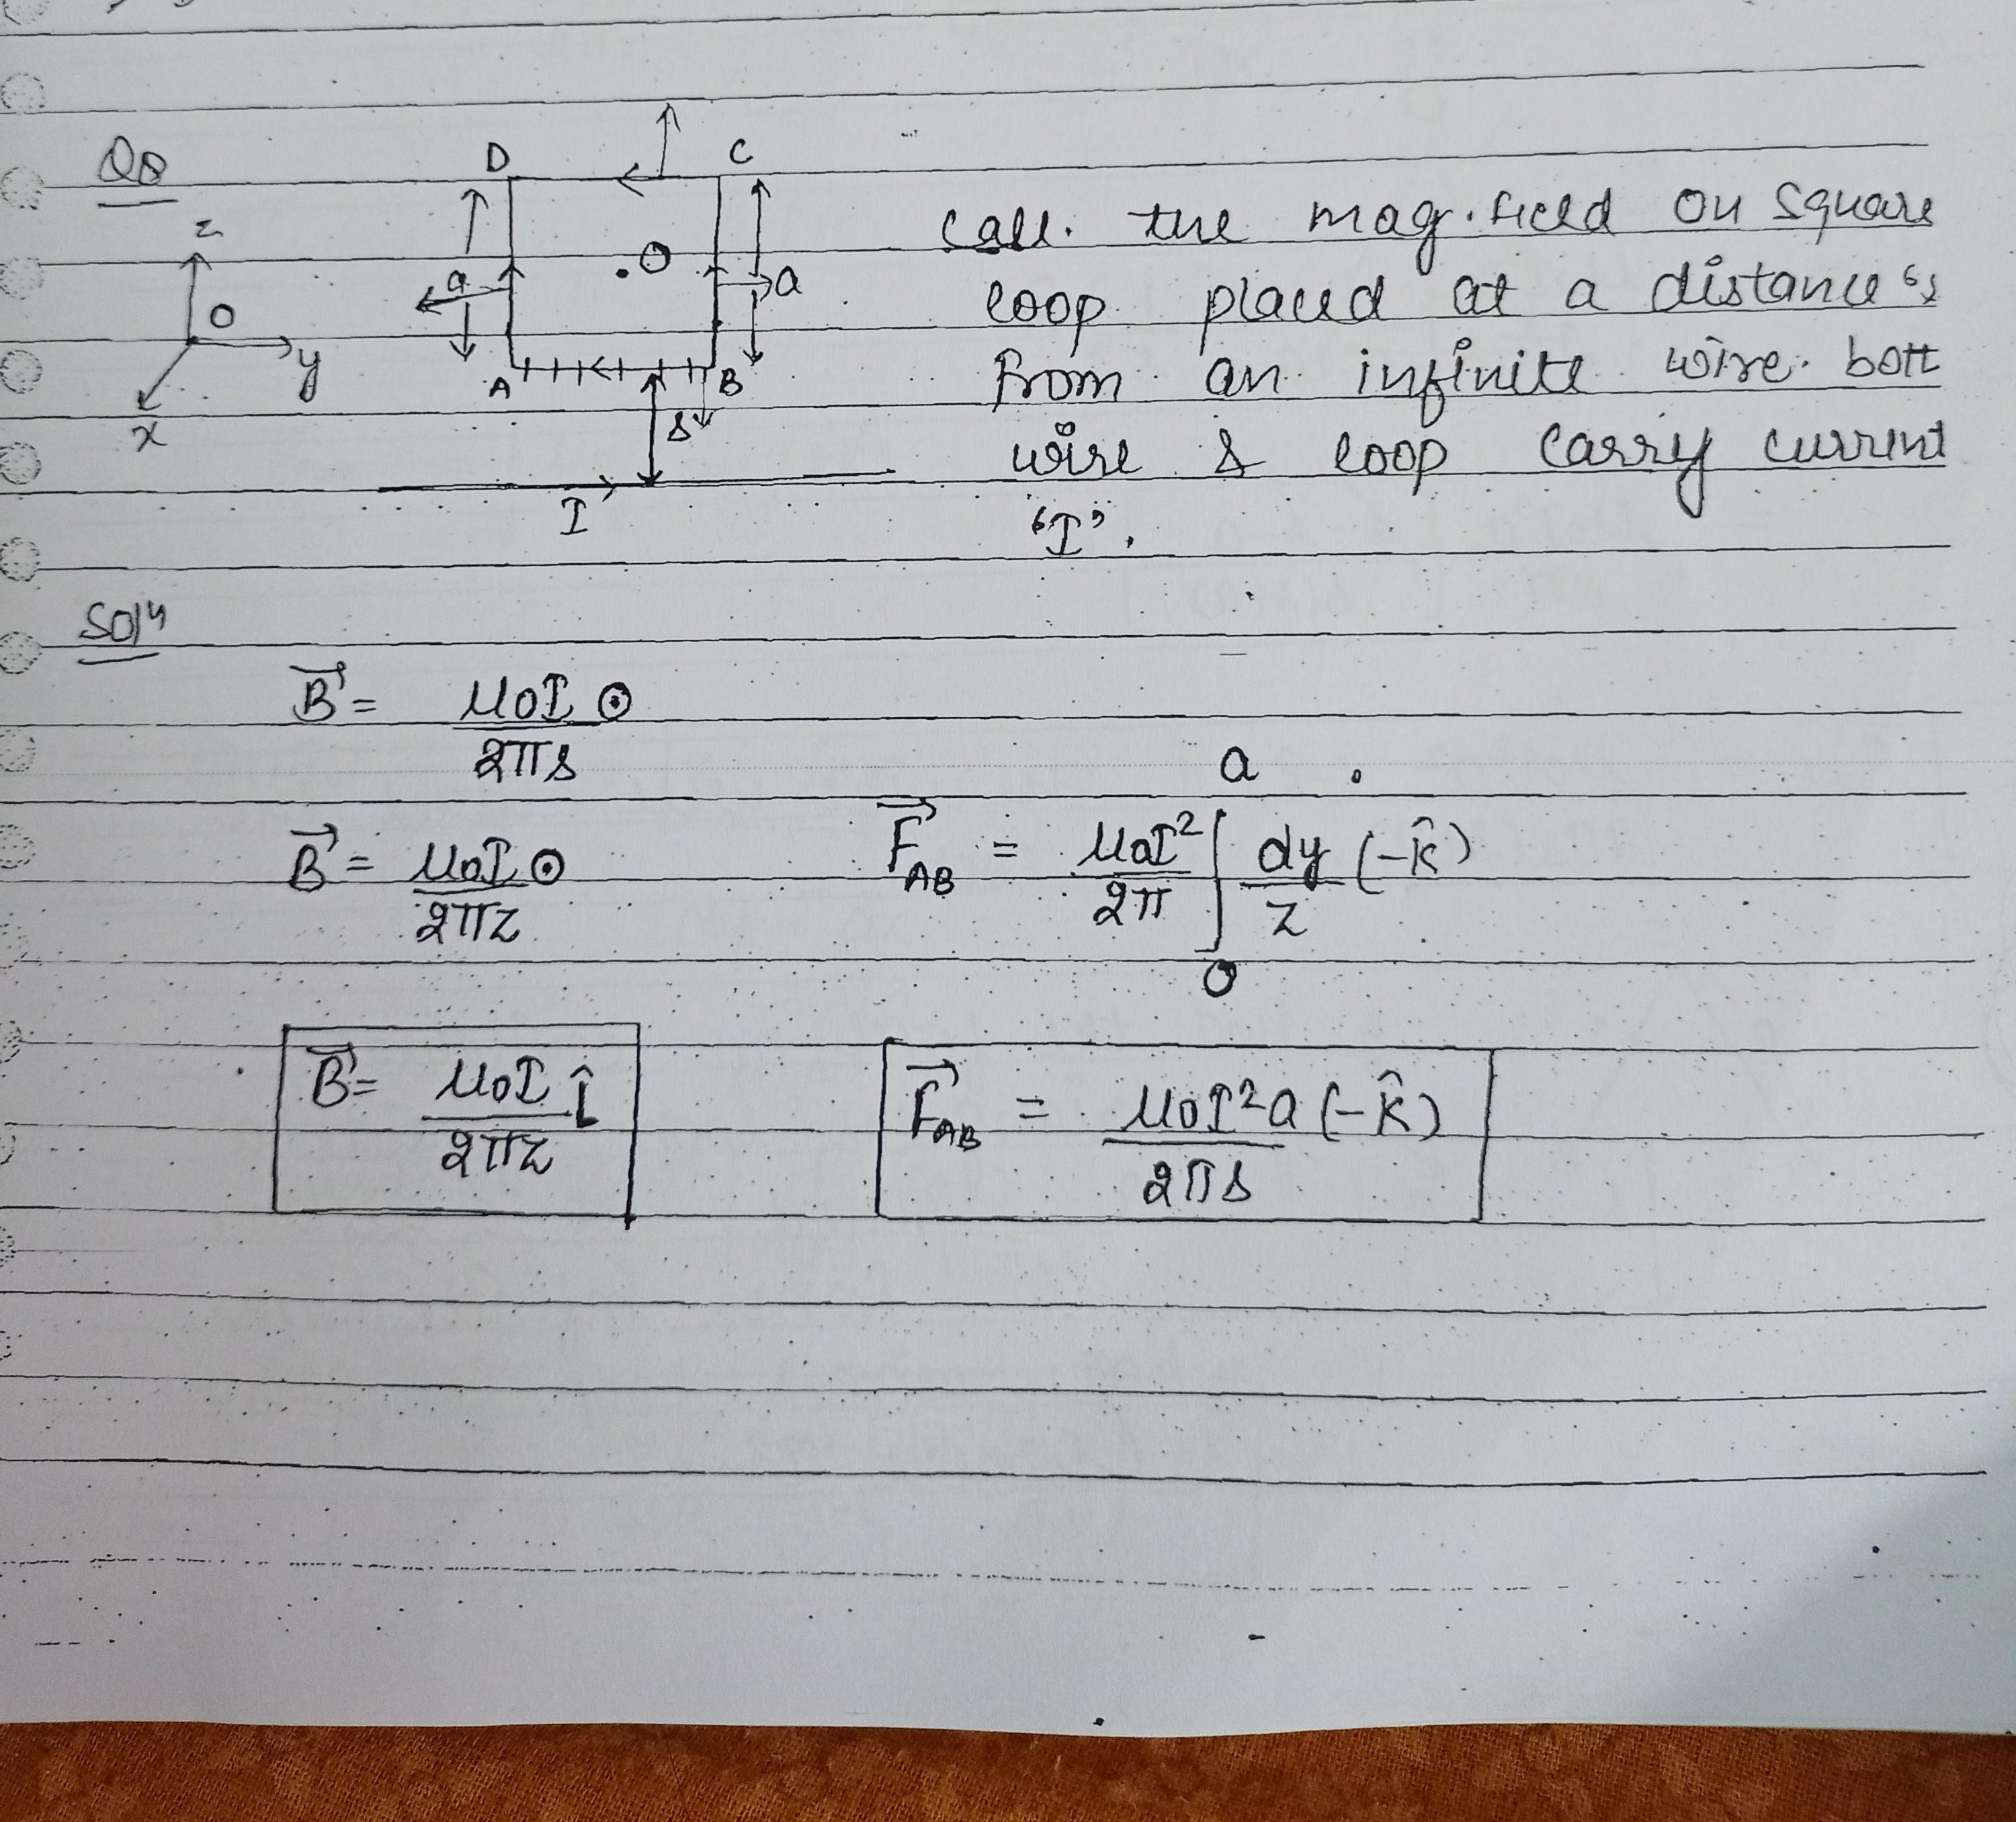 Q8
D
C
z
a
.O
a
O
y
A
B
x
s
I
Call. the mag. field on square
loop placed at a distance "s
from an infinite wire. both
wire & loop carry current
"I".
Soln
B⃗ = μoI ⊙
2πs
B⃗ = μoI ⊙
2πz
F⃗AB = μoI² ∫ dy (-k̂)
2π z
a
0
B⃗ = μoI î
2πz
F⃗AB = μoI²a (-k̂)
2πs